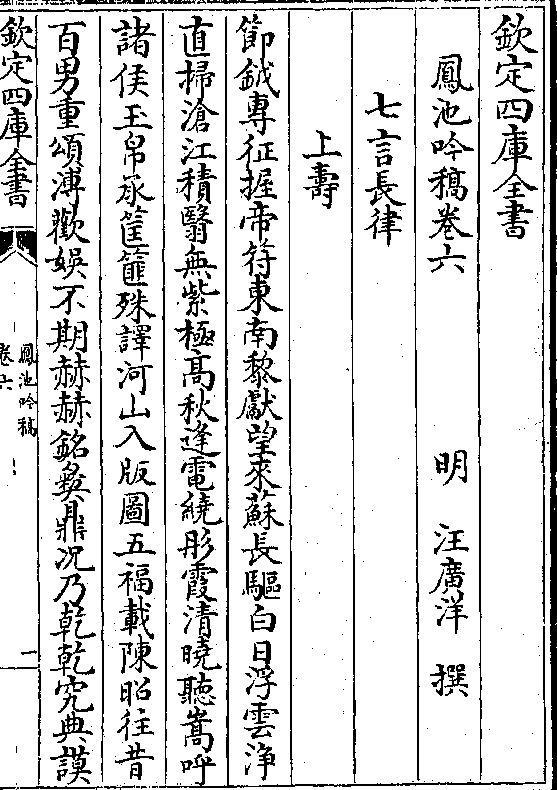 欽定四庫全書
鳳池吟稿卷六
明 汪廣洋 撰
七言長律
上壽
節鉞專征握帝符東南黎獻望來蘇長驅白日浮雲浄
直掃滄江積翳無紫極髙秋逢電繞彤霞清曉聽嵩呼
諸侯玉帛承筐篚殊譯河山入版圖五福載陳昭往昔
百男重頌溥歡娯不期赫赫銘彛鼎况乃乾乾究典謨
欽定四庫全書
鳳池吟稿
卷六
一